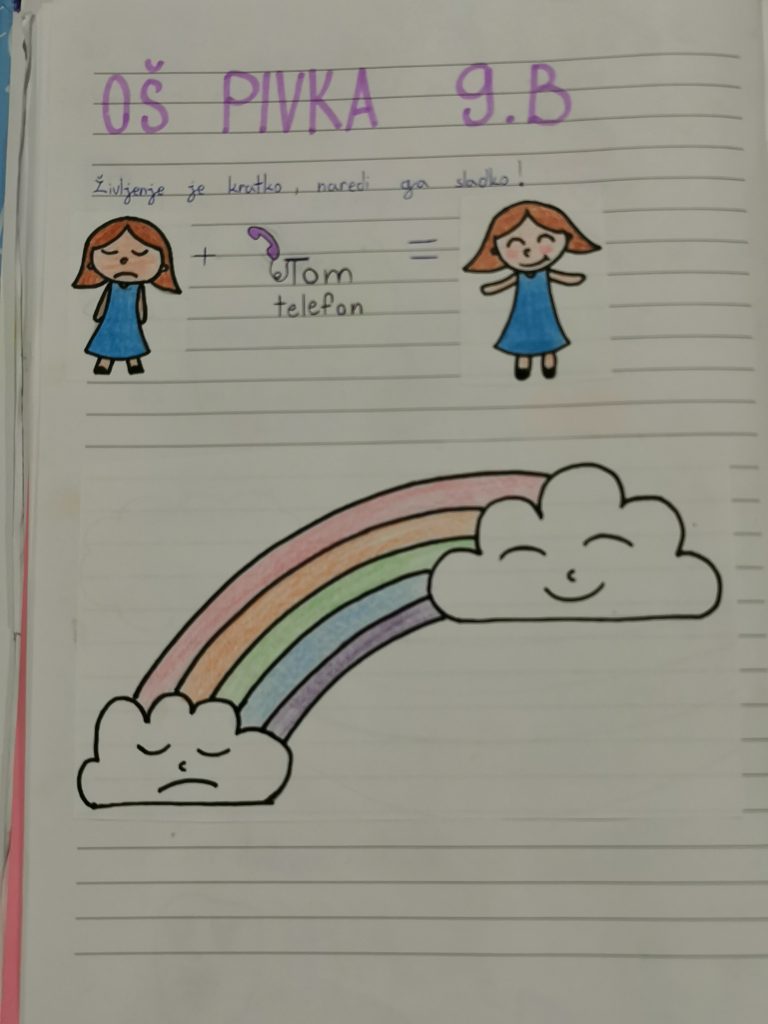 OŠ PIVKA 9.B
Življenje je kratko, naredi ga sladko!
+ Tom =
telefon